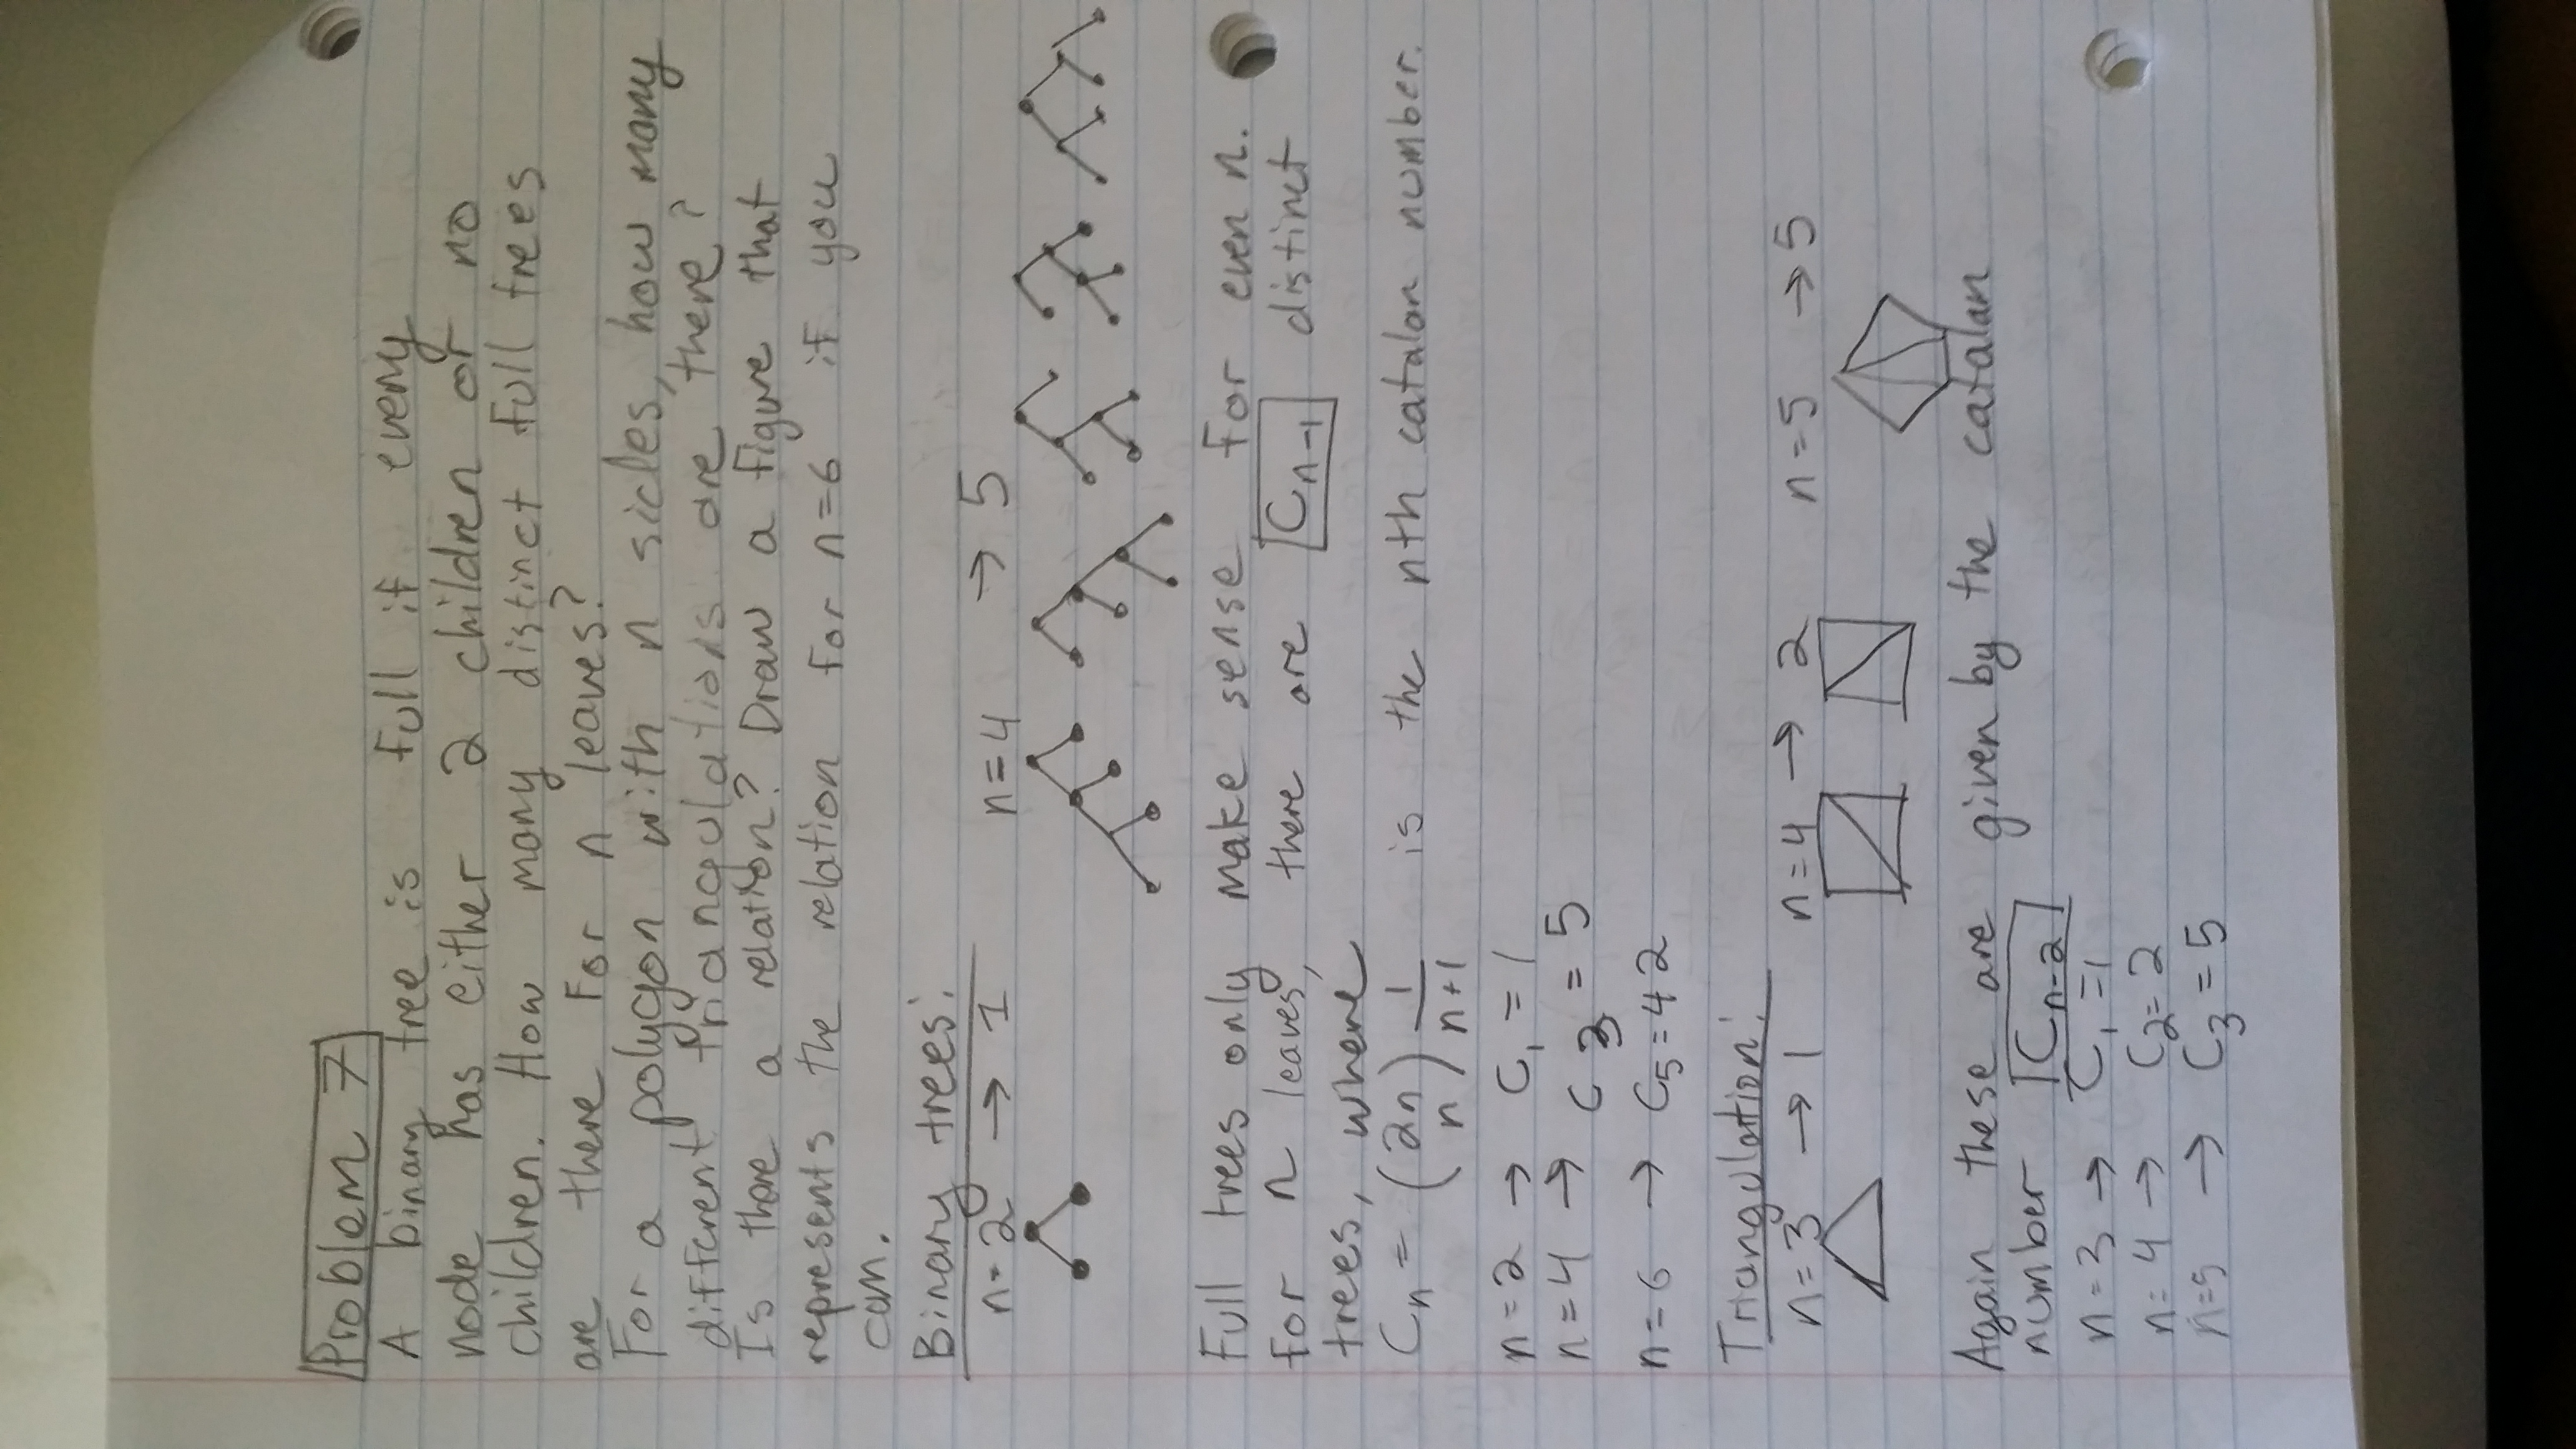 Problem 7
A binary tree is full if every
node has either 2 children or no
children. How many distinct full trees
are there for n leaves?
For a polygon with n sides, how many
different triangulations are there?
Is there a relation? Draw a figure that
represents the relation for n=6 if you
can.
Binary trees:
n=2 → 1 n=4 → 5
Full trees only make sense for even n.
for n leaves, there are C_{n-1} distinct
trees, where
C_n = (2n n) 1/(n+1) is the nth catalan number.
n=2 → C_1 = 1
n=4 → C_3 = 5
n=6 → C_5 = 42
Triangulation:
n=3 → 1 n=4 → 2 n=5 → 5
Again these are given by the catalan
number C_{n-2}
n=3 → C_1 = 1
n=4 → C_2 = 2
n=5 → C_3 = 5